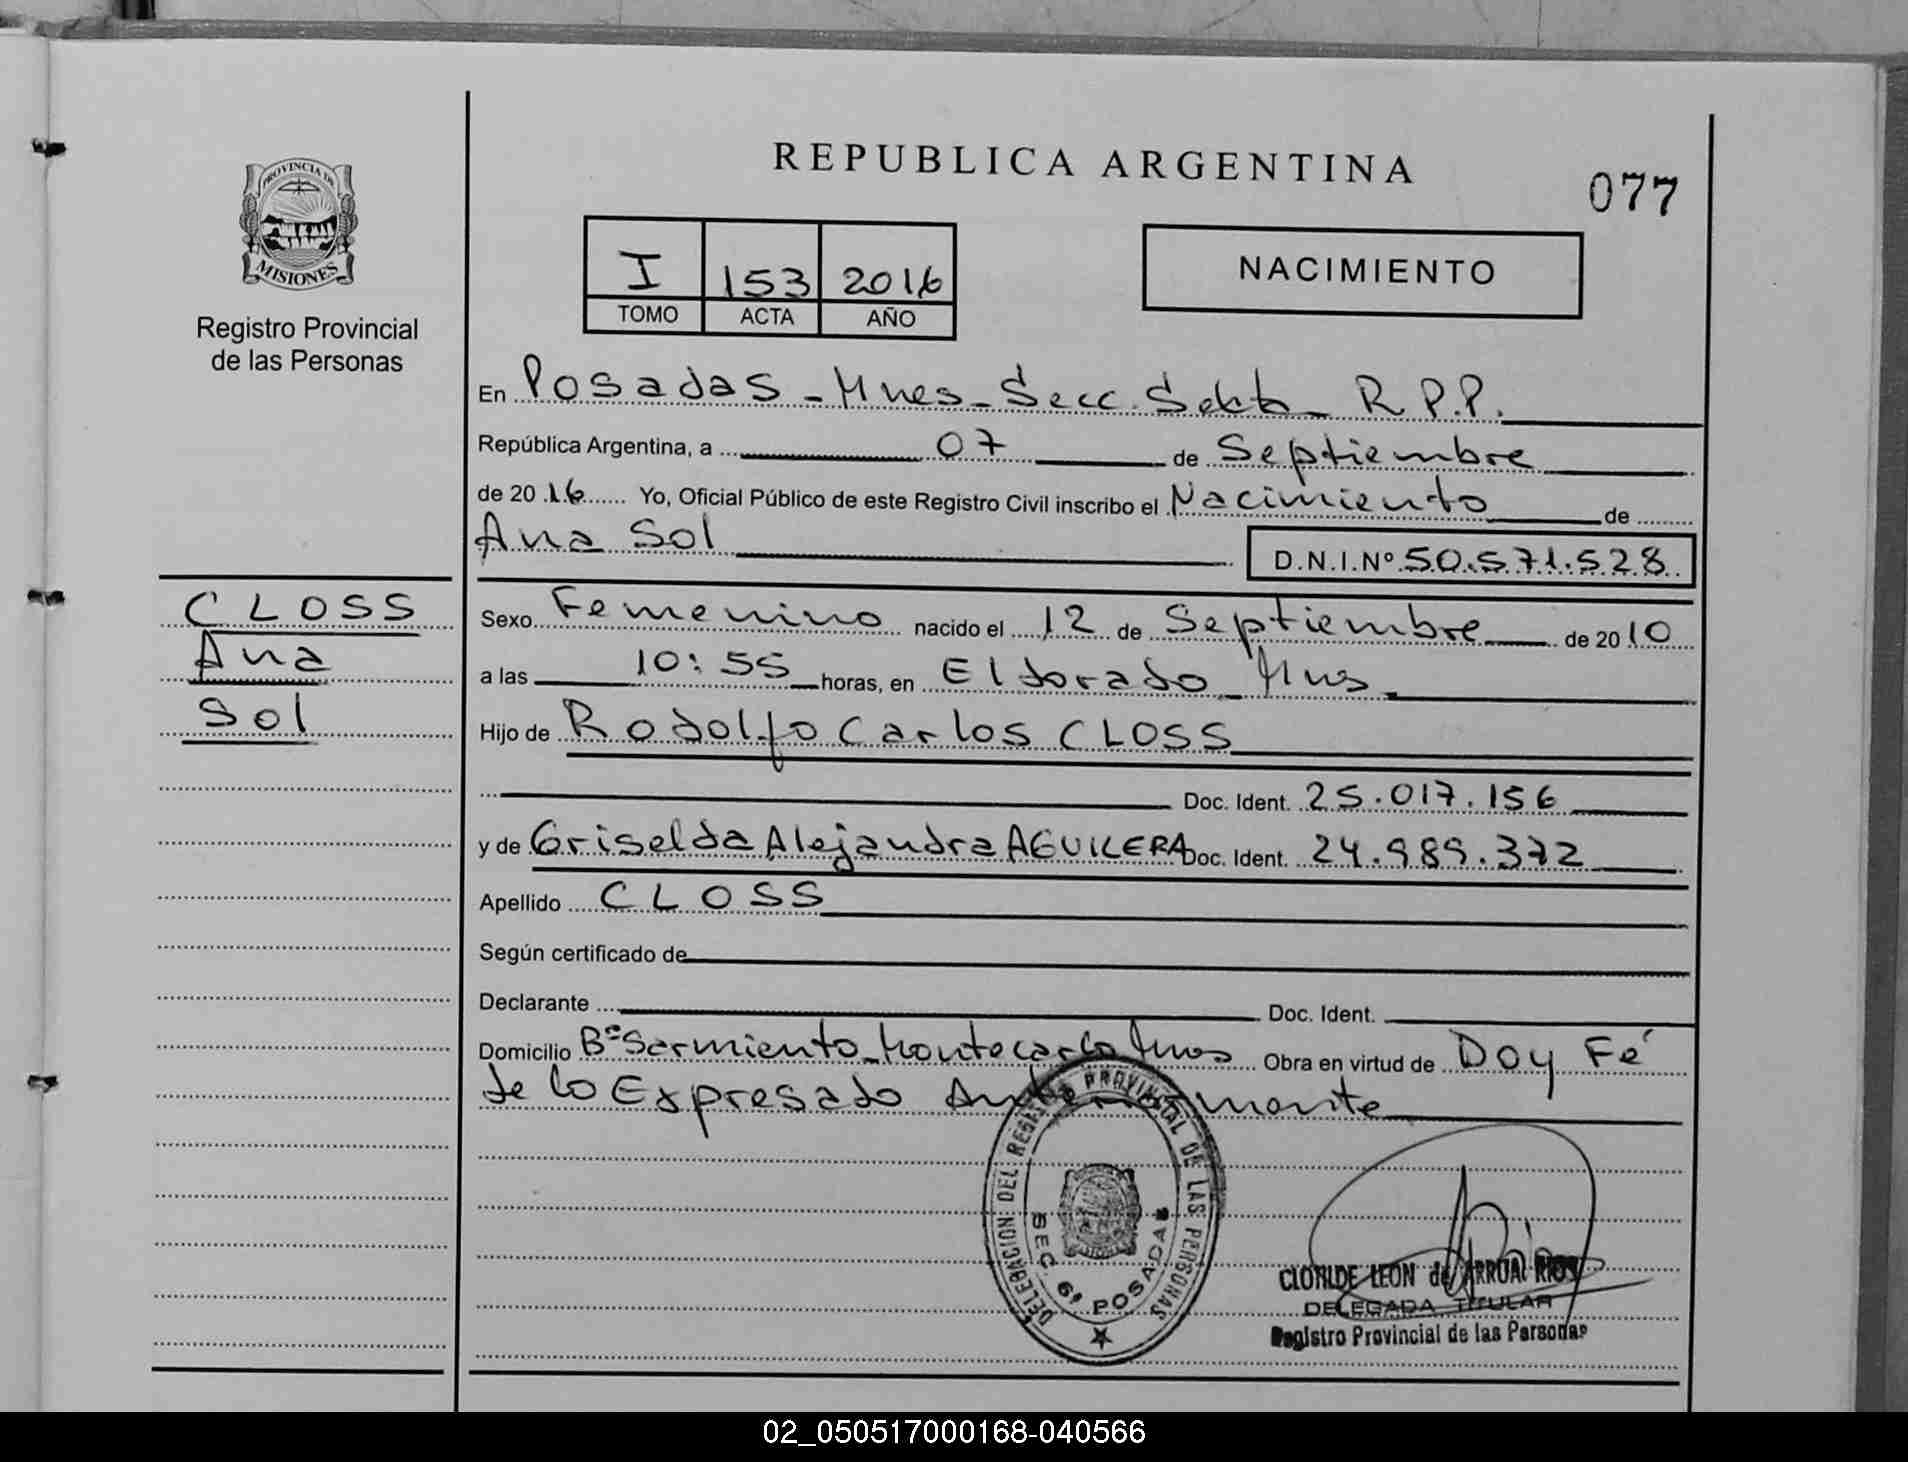 REPUBLICA ARGENTINA
077
PROVINCIA DE
MISIONES
Registro Provincial
de las Personas
I 153 2016
TOMO ACTA AÑO
NACIMIENTO
En Posadas - Mnes - Secc. Sexta - R.P.P.
República Argentina, a 07 de Septiembre
de 2016 Yo, Oficial Público de este Registro Civil inscribo el Nacimiento de
Ana Sol D.N.I.Nº 50.571.528
CLOSS
Ana
Sol
Sexo Femenino nacido el 12 de Septiembre de 2010
a las 10:55 horas, en Eldorado Mnes
Hijo de Rodolfo Carlos CLOSS
Doc. Ident. 25.017.156
y de Griselda Alejandra AGUILERA Doc. Ident. 24.989.372
Apellido CLOSS
Según certificado de
Declarante Doc. Ident.
Domicilio Bº Sarmiento - Montecarlo Mnes Obra en virtud de Doy Fé
de lo Expresado Anteriormente
DELEGACION DEL REGISTRO PROVINCIAL DE LAS PERSONAS
SEC. 6ª POSADAS
CLOTILDE LEON de ARRUAI RIOS
DELEGADA TITULAR
Registro Provincial de las Personas
02_050517000168-040566